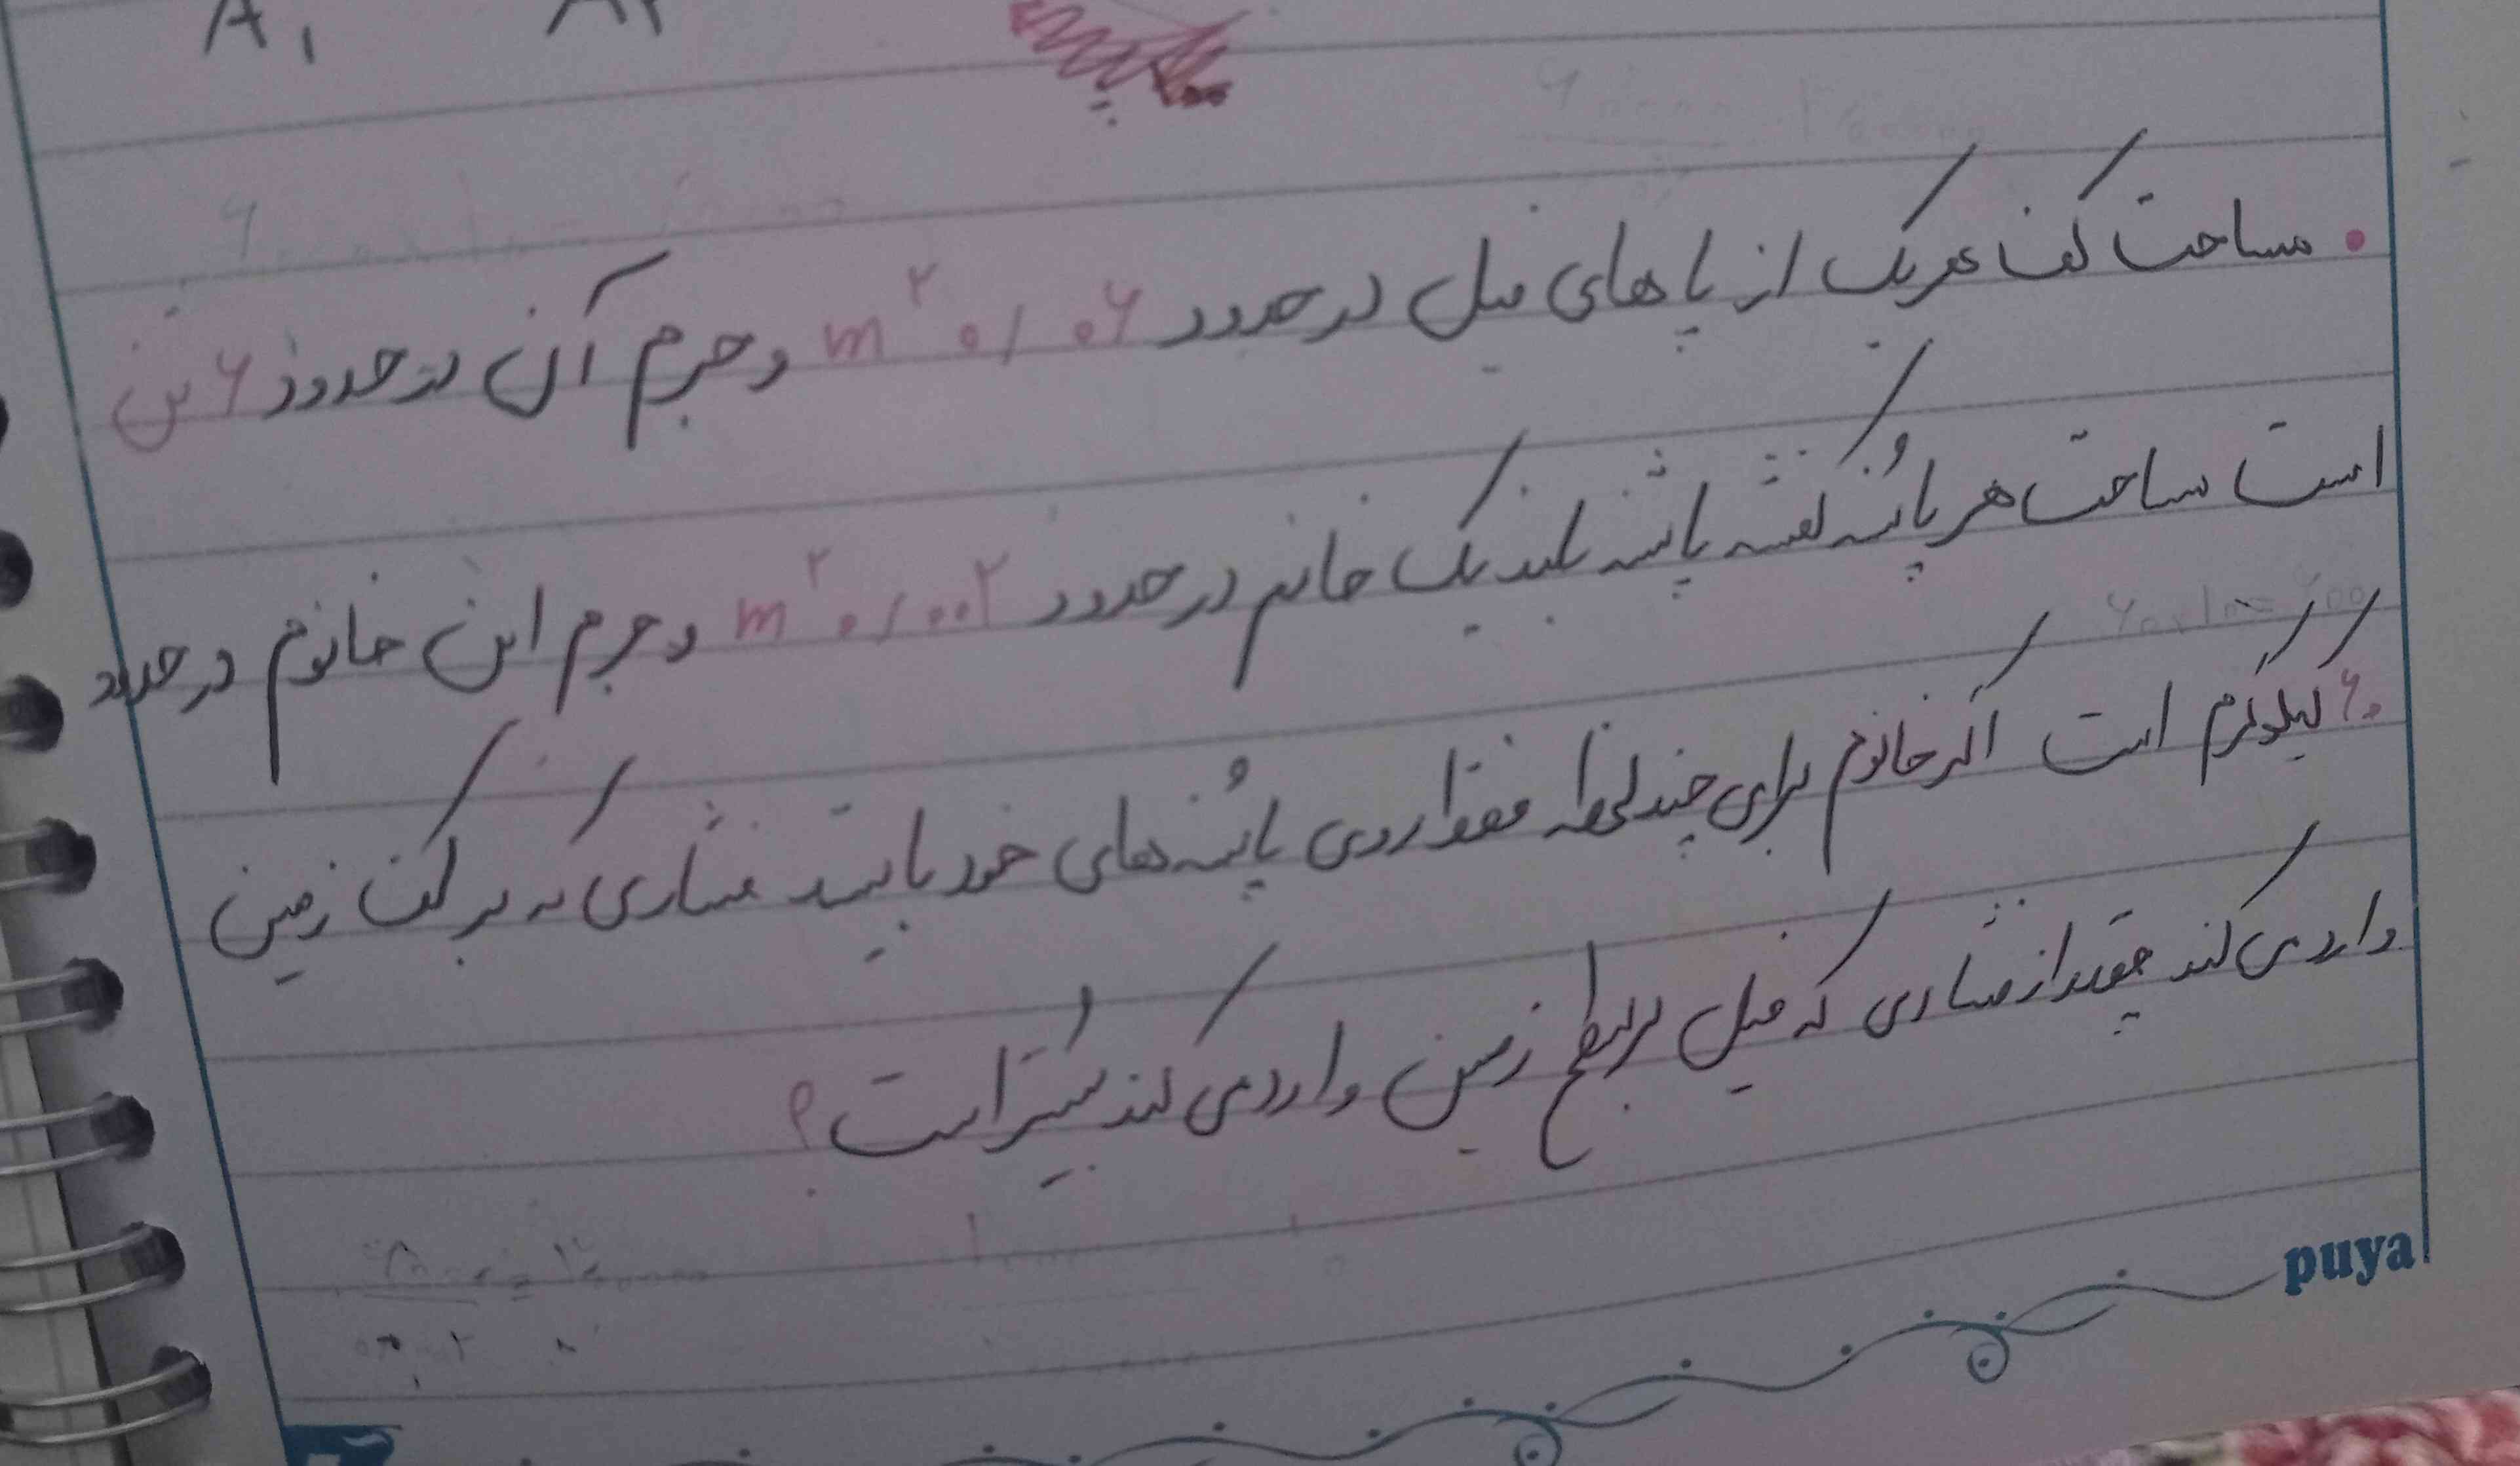 A₁ A₂
• مساحت کف هر یک از پاهای فیل در حدود ۰/۰۶ m² و جرم آن در حدود ۶ تن
است مساحت هر پاشنه کفش پاشنه بلند یک خانم در حدود ۰/۰۰۲ m² و جرم این خانوم در حدود
۶۰ کیلوگرم است اگر خانوم برای چند لحظه فقط روی پاشنه های خود بایستد فشاری که بر کف زمین
وارد می کند چقدر از فشاری که فیل بر سطح زمین وارد می کند بیشتر است؟
puya